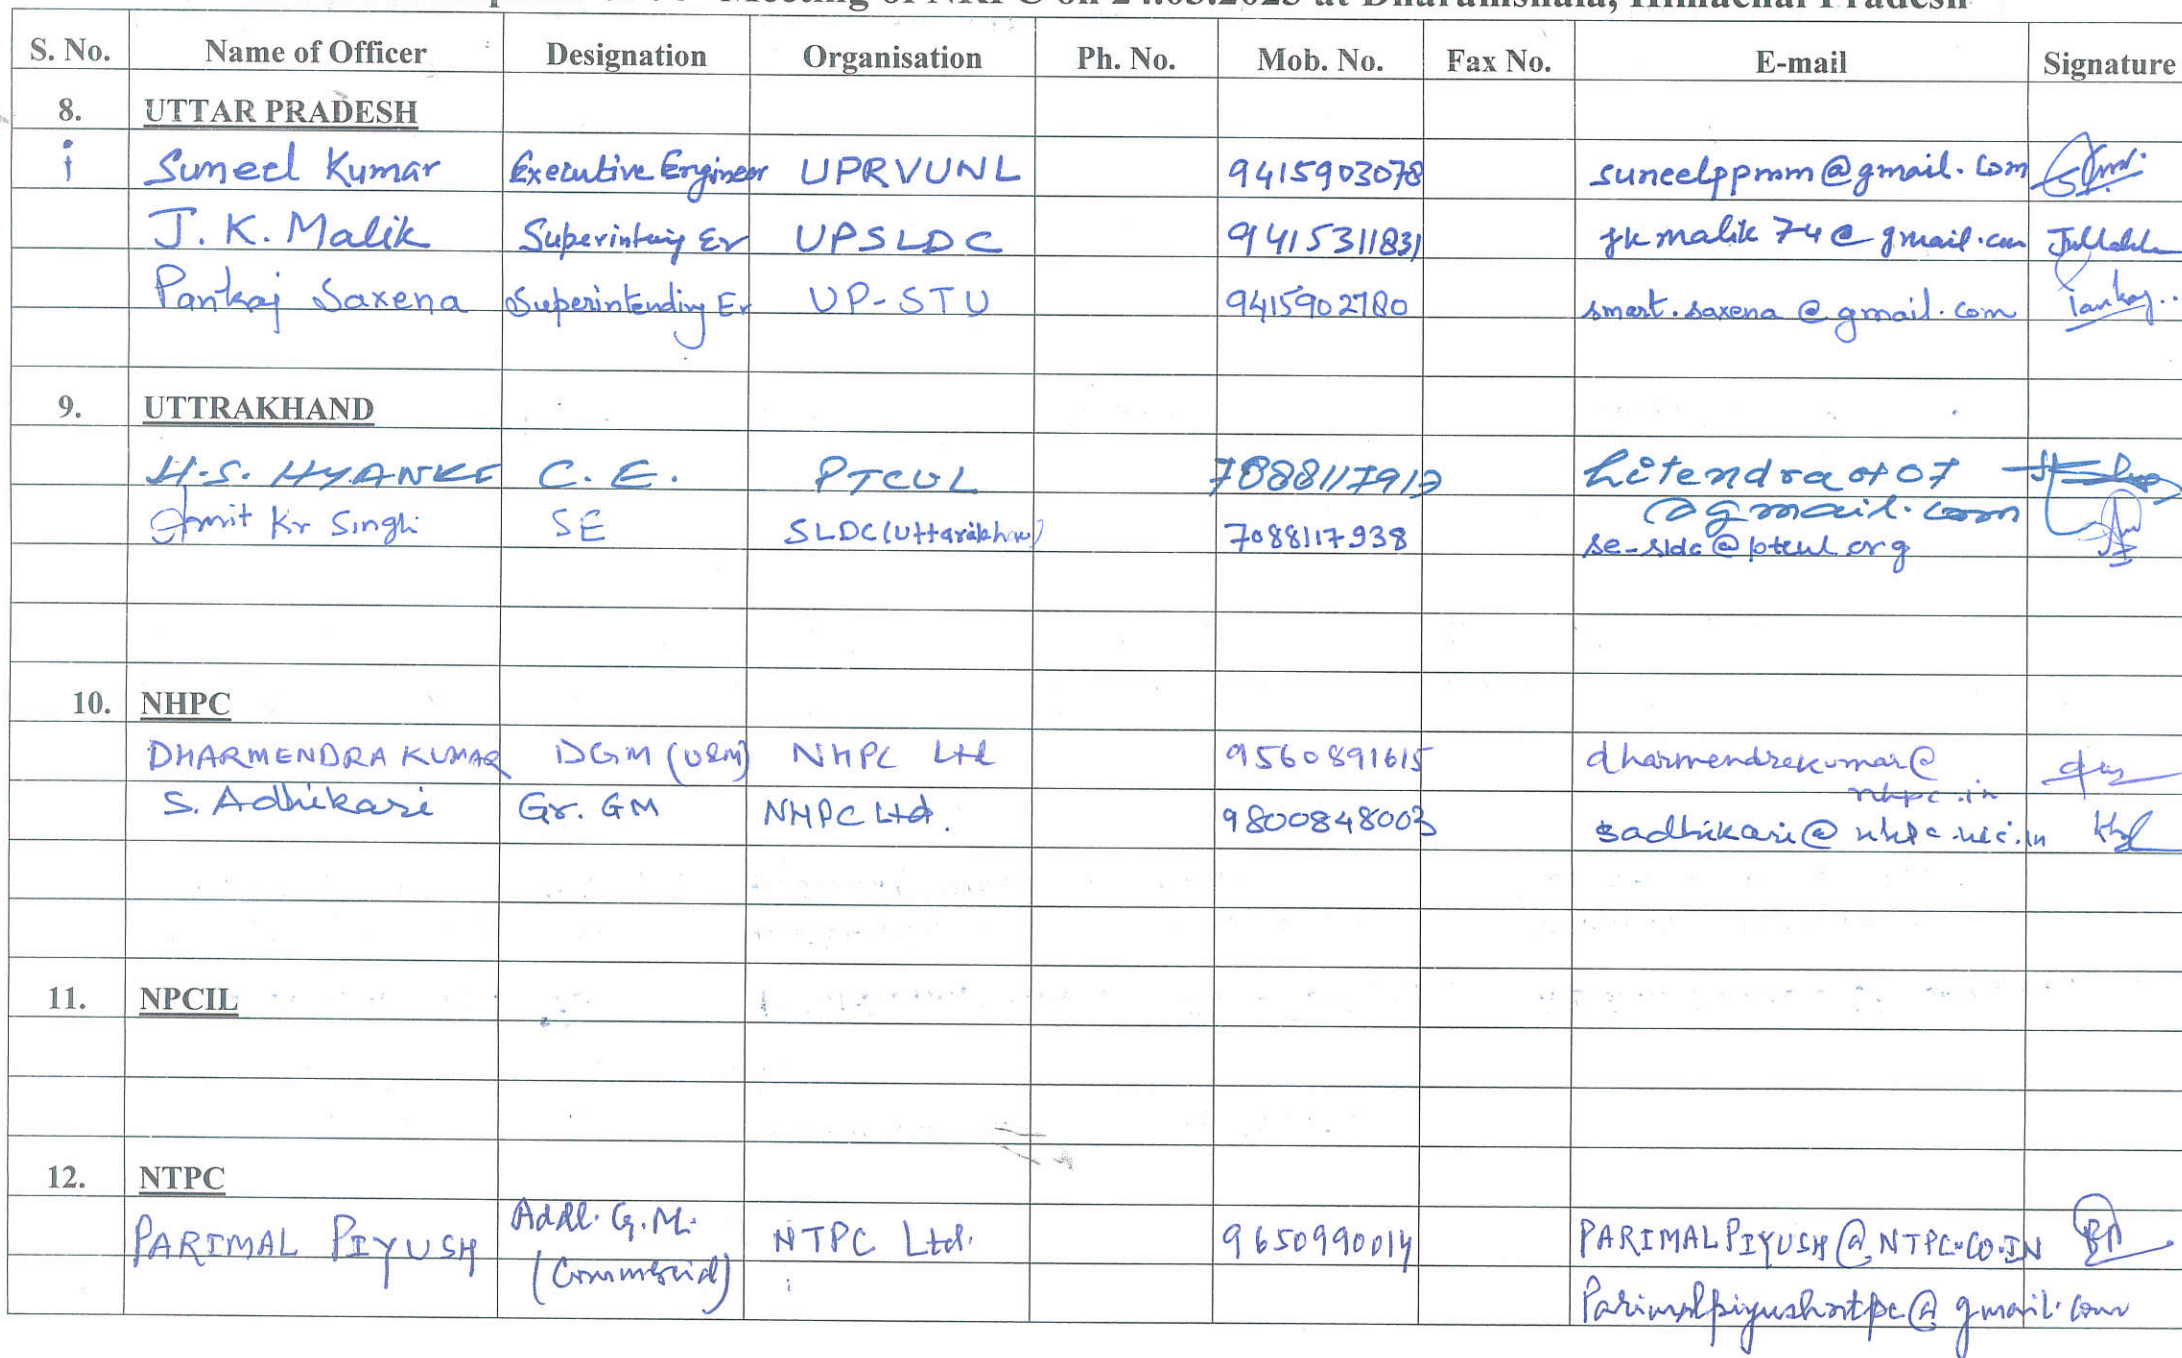 Meeting of NRPC on 24.03.2023 at Dharamshala, Himachal Pradesh
S. No. Name of Officer Designation Organisation Ph. No. Mob. No. Fax No. E-mail Signature
8. UTTAR PRADESH
i Suneel Kumar Executive Engineer UPRVUNL 9415903078 suneelppmm@gmail.com
J. K. Malik Superintending Er UPSLDC 9415311831 jkmalik74@gmail.com
Pankaj Saxena Superintending Er UP-STU 9415902780 smart.saxena@gmail.com Pankaj..
9. UTTRAKHAND
H.S. HYANKI C.E. PTCUL 7088117913 hitendra
@gmail.com
Amit Kr Singh SE SLDC(Uttarakhand) 7088117938 se-sldc@ptcul.org
10. NHPC
DHARMENDRA KUMAR DGM (O&M) NHPC Ltd 9560891615 dharmendrakumar@
nhpc.in
S. Adhikari Gr. GM NHPC Ltd. 9800848003 sadhikari@nhpc.nic.in
11. NPCIL
12. NTPC
PARIMAL PIYUSH Addl. G.M. NTPC Ltd. 9650990014 PARIMALPIYUSH@NTPC.CO.IN
(Commercial)
Parimalpiyushntpc@gmail.com